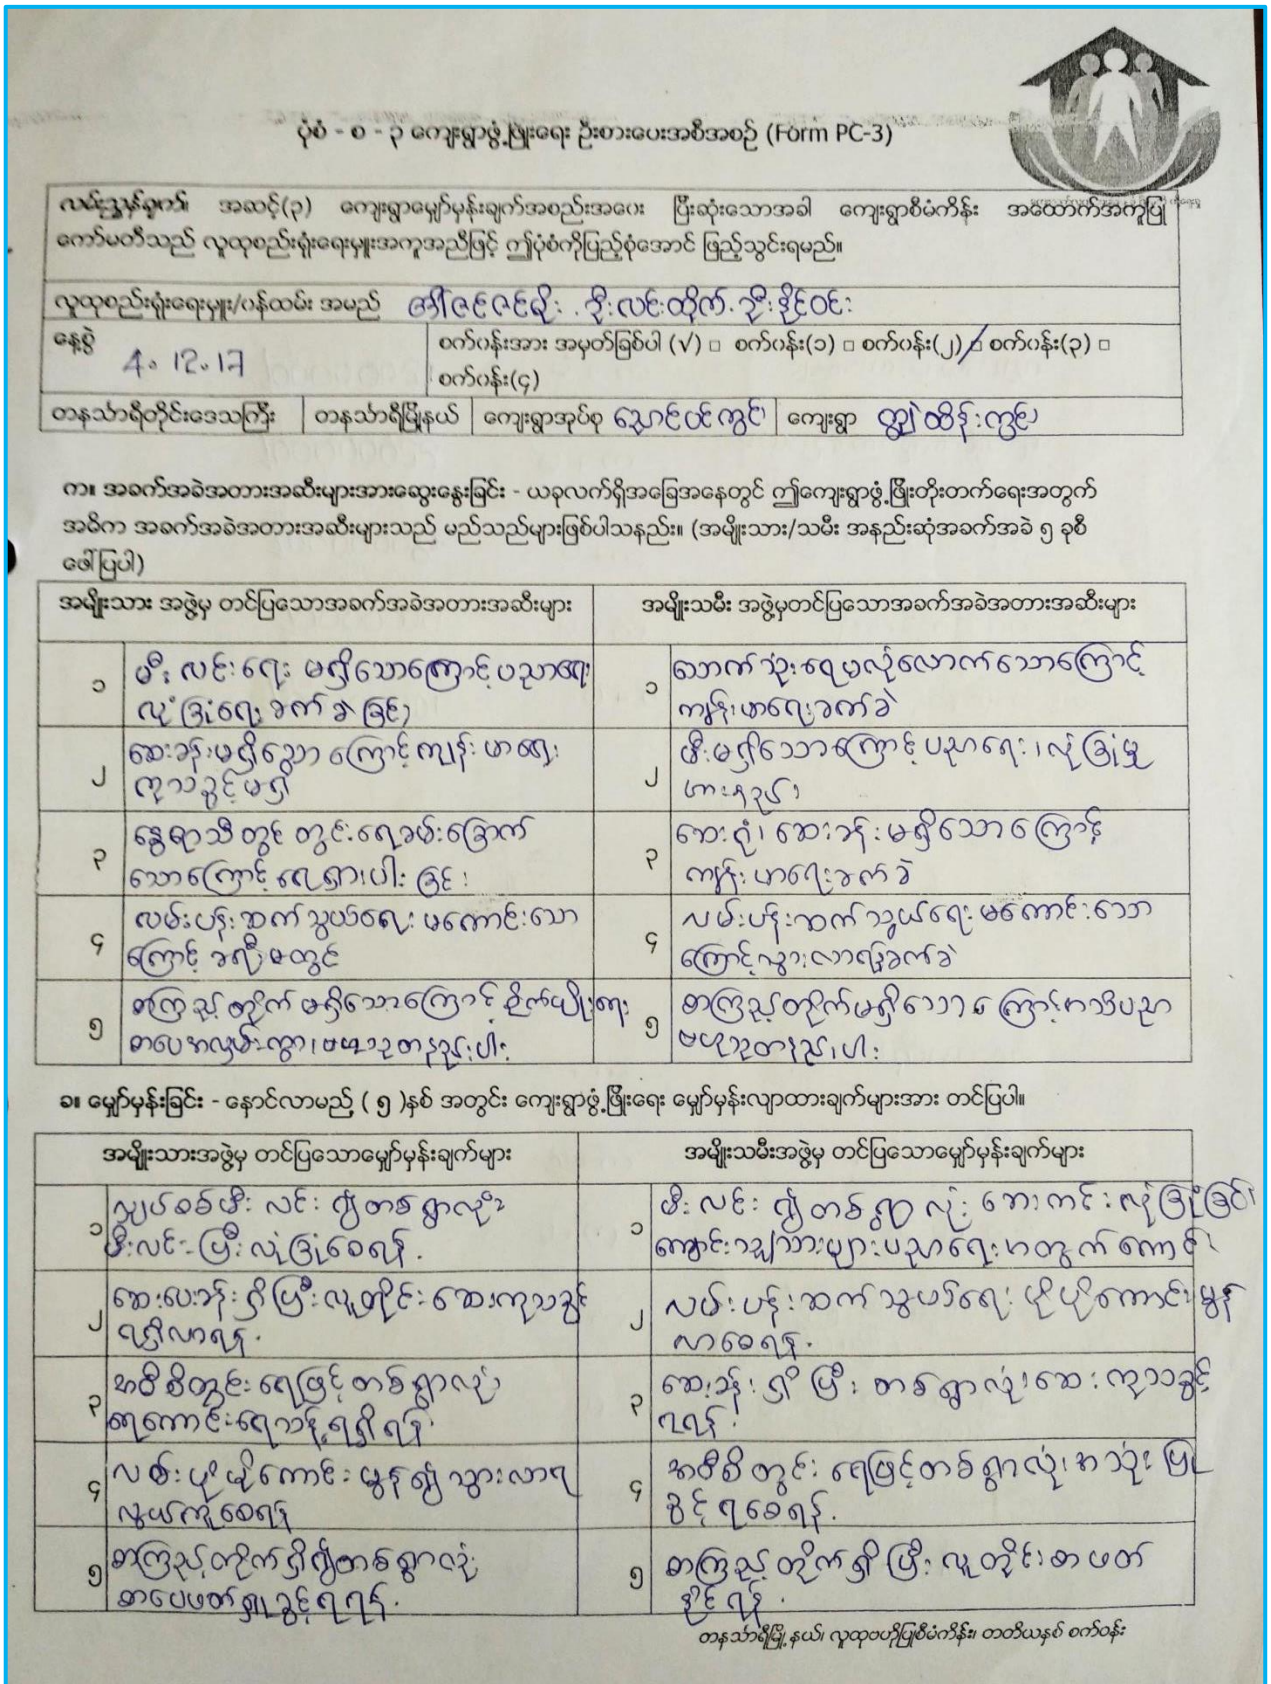 ပုံစံ - စ - ၃ ကျေးရွာဖွံ့ဖြိုးရေး ဦးစားပေးအစီအစဉ် (Form PC-3)
လမ်းညွှန်ချက်။ အဆင့်(၃) ကျေးရွာမျှော်မှန်းချက်အစည်းအဝေး ပြီးဆုံးသောအခါ ကျေးရွာစီမံကိန်း အထောက်အကူပြု
ကော်မတီသည် လူထုစည်းရုံးရေးမှူးအကူအညီဖြင့် ဤပုံစံကိုပြည့်စုံအောင် ဖြည့်သွင်းရမည်။
လူထုစည်းရုံးရေးမှူး/ဝန်ထမ်း အမည် ဒေါ်ဇင်ဇင်မိုး . ဦးလင်းထိုက်. ဦးနိုင်ဝင်း
နေ့စွဲ 4.12.17
စက်ဝန်းအား အမှတ်ခြစ်ပါ (√) □ စက်ဝန်း(၁) □ စက်ဝန်း(၂) □ စက်ဝန်း(၃) □
စက်ဝန်း(၄)
တနင်္သာရီတိုင်းဒေသကြီး တနင်္သာရီမြို့နယ် ကျေးရွာအုပ်စု ညောင်ပင်ကွင်း ကျေးရွာ ကျွဲထိန်းကွင်း
က။ အခက်အခဲအတားအဆီးများအားဆွေးနွေးခြင်း - ယခုလက်ရှိအခြေအနေတွင် ဤကျေးရွာဖွံ့ဖြိုးတိုးတက်ရေးအတွက်
အဓိက အခက်အခဲအတားအဆီးများသည် မည်သည်များဖြစ်ပါသနည်း။ (အမျိုးသား/သမီး အနည်းဆုံအခက်အခဲ ၅ ခုစီ
ဖေါ်ပြပါ)
အမျိုးသား အဖွဲ့မှ တင်ပြသောအခက်အခဲအတားအဆီးများ
အမျိုးသမီး အဖွဲ့မှတင်ပြသောအခက်အခဲအတားအဆီးများ
၁ မီးလင်းရေး မရှိသောကြောင့် ပညာရေး
လုံခြုံရေး ခက်ခဲခြင်း
၁ သောက်သုံးရေမလုံလောက်သောကြောင့်
ကျန်းမာရေးခက်ခဲ
၂ ဆေးခန်းမရှိသောကြောင့်ကျန်းမာရေး
ကုသခွင့်မရှိ
၂ မီးမရှိသောကြောင့်ပညာရေး၊လုံခြုံမှု
အားနည်း
၃ နွေရာသီတွင် တွင်းရေခမ်းခြောက်
သောကြောင့် ရေရှားပါးခြင်း
၃ ဆေးရုံ၊ ဆေးခန်းမရှိသောကြောင့်
ကျန်းမာရေးခက်ခဲ
၄ လမ်းပန်းဆက်သွယ်ရေး မကောင်းသော
ကြောင့် ခရီးမတွင်
၄ လမ်းပန်းဆက်သွယ်ရေးမကောင်းသော
ကြောင့်သွားလာရေးခက်ခဲ
၅ စာကြည့်တိုက်မရှိသောကြောင့် စိုက်ပျိုးရေး
စာပေအလှမ်းကွာ၊ဗဟုသုတနည်းပါး
၅ စာကြည့်တိုက်မရှိသောကြောင့်အသိပညာ
ဗဟုသုတနည်းပါး
ခ။ မျှော်မှန်းခြင်း - နောင်လာမည် ( ၅ )နှစ် အတွင်း ကျေးရွာဖွံ့ဖြိုးရေး မျှော်မှန်းလျာထားချက်များအား တင်ပြပါ။
အမျိုးသားအဖွဲ့မှ တင်ပြသောမျှော်မှန်းချက်များ
အမျိုးသမီးအဖွဲ့မှ တင်ပြသောမျှော်မှန်းချက်များ
၁ လျှပ်စစ်မီးလင်း၍တစ်ရွာလုံး
မီးလင်းပြီးလုံခြုံစေရန်.
၁ မီးလင်း၍တစ်ရွာလုံး ဘေးကင်းလုံခြုံခြင်း
ကျောင်းသူ/သားများပညာရေးအတွက်ကောင်း
၂ ဆေးပေးခန်းရှိပြီးလူတိုင်းဆေးကုသခွင့်
ရရှိလာရန်.
၂ လမ်းပန်းဆက်သွယ်ရေး ပိုမိုကောင်းမွန်
လာစေရန်.
၃ အဝီစိတွင်းရေဖြင့်တစ်ရွာလုံး
ရေကောင်းရေသန့်ရရှိရန်.
၃ ဆေးခန်းရှိပြီးတစ်ရွာလုံးဆေးကုသခွင့်
ရရန်.
၄ လမ်းပိုမိုကောင်းမွန်၍သွားလာရ
လွယ်ကူစေရန်
၄ အဝီစိတွင်းရေဖြင့်တစ်ရွာလုံးအသုံးပြု
ခွင့်ရစေရန်.
၅ စာကြည့်တိုက်ရှိ၍တစ်ရွာလုံး
စာပေဖတ်ရှုခွင့်ရရန်.
၅ စာကြည့်တိုက်ရှိပြီးလူတိုင်းစာဖတ်
နိုင်ရန်.
တနင်္သာရီမြို့နယ်၊ လူထုဗဟိုပြုစီမံကိန်း၊ တတိယနှစ် စက်ဝန်း